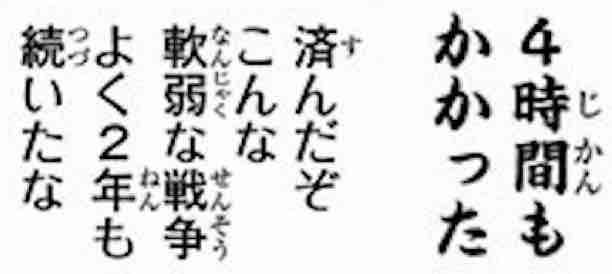 4時間も
かかった
済んだぞ
こんな
軟弱な戦争
よく2年も
続いたな